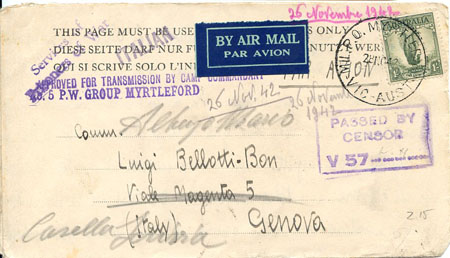 26 November 1942
THIS PAGE MUST BE USE
S ONLY
DIESE SEITE DARF NUR FU
NUTZ WER
QUI SI SCRIVE SOLO L'IN
BY AIR MAIL
PAR AVION
Service of
Prisoners of War
ITALIAN
AUSTRALIA
MIL. P.O. MYRTLEFORD
VIC-AUST
APPROVED FOR TRANSMISSION BY CAMP COMMANDANT
No. 5 P.W. GROUP MYRTLEFORD
PAR AVION
26 Nov. 42
26 November
1942
PASSED BY
CENSOR
V 57
Comm.
Luigi Bellotti-Bon
Viale Magenta 5
(Italy) Genova
Casella
2.15